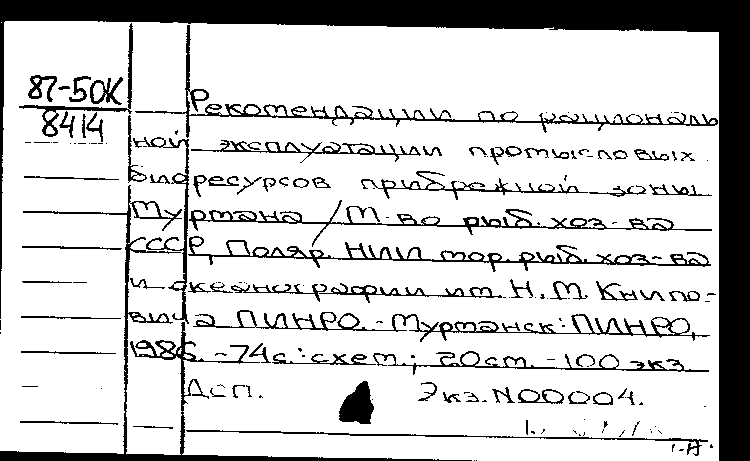 87-50К
8414
Рекомендации по рациональ
ной эксплуатации промысловых
биоресурсов прибрежной зоны
Мурмана / М-во рыб. хоз-ва
СССР, Поляр. НИИ мор. рыб. хоз-ва
и океанографии им. Н. М. Книпо-
вича ПИНРО. - Мурманск: ПИНРО,
1986. - 74 с.: схем.; 20 см. - 100 экз.
Дсп. Экз. N00004.